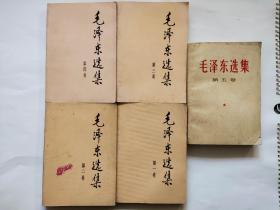 毛泽东选集
第四卷
毛泽东选集
第三卷
毛泽东选集
第五卷
毛泽东选集
第二卷
毛泽东选集
第一卷